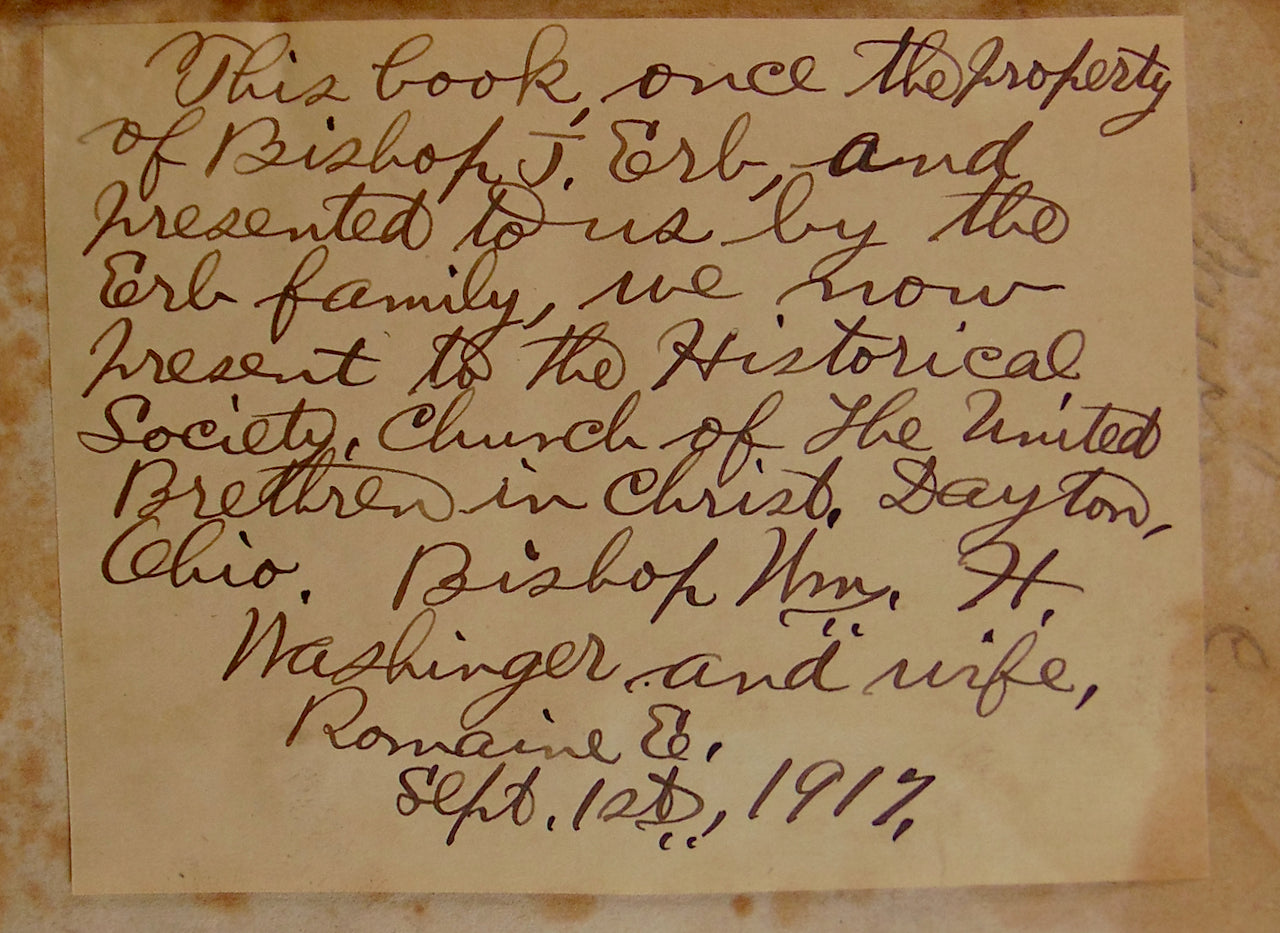 This book, once the property
of Bishop J. Erb, and
presented to us by the
Erb family, we now
present to the Historical
Society, Church of The United
Brethren in Christ, Dayton,
Ohio. Bishop Wm. H.
Washinger and wife,
Romaine E.
Sept. 1st, 1917.